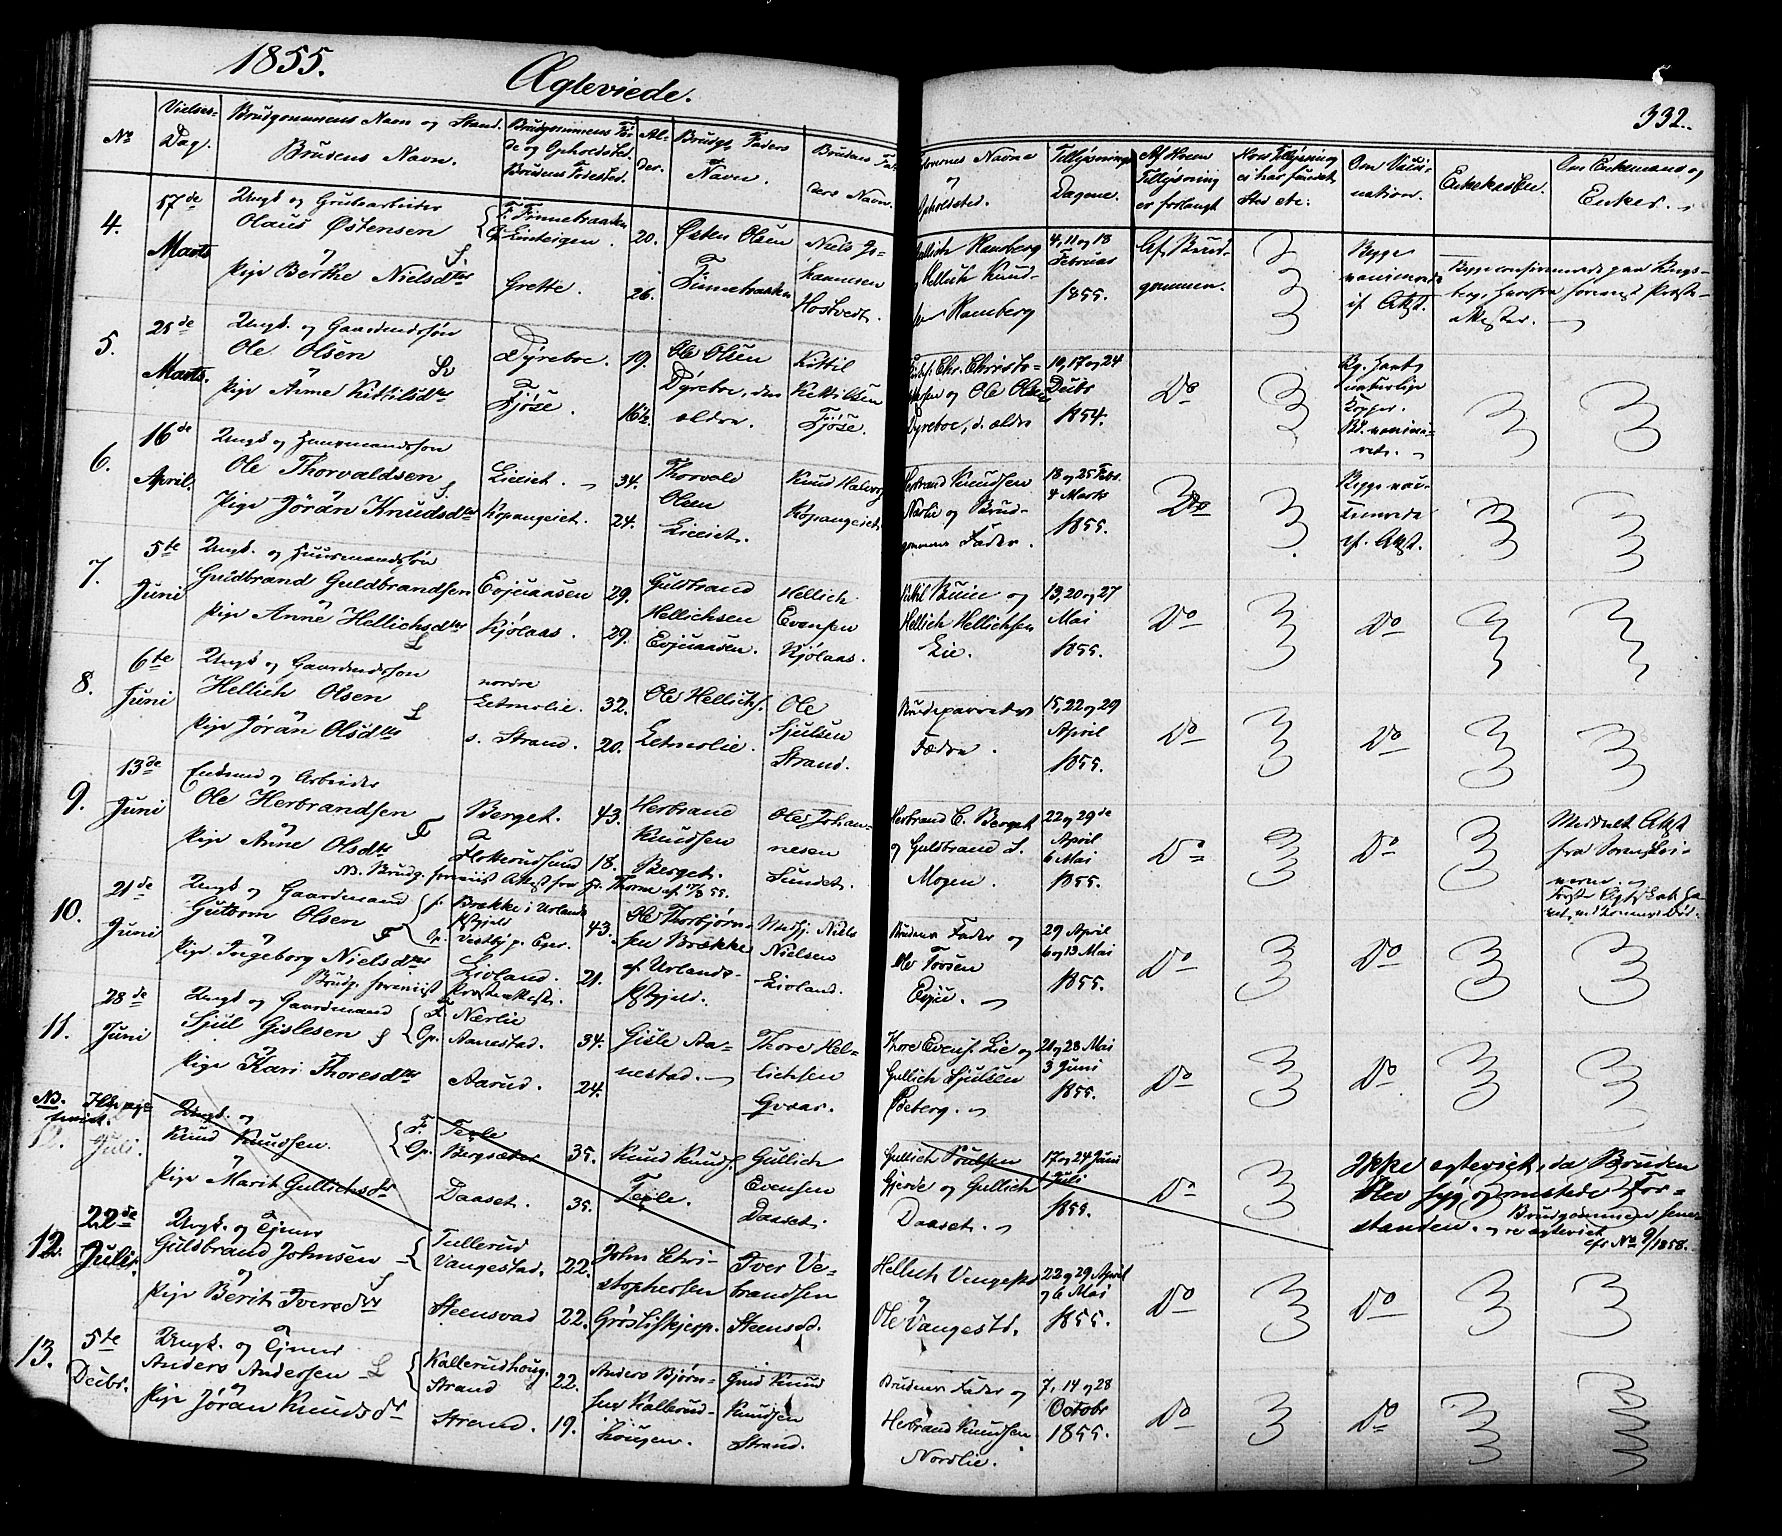 1855.
Ægteviede.
332.
No
Vielses-
Dag.
Brudgommens Navn og Stand.
Brudens Navn.
Brudgommens Fø-
de og Opholdsted.
Brudens Fødested.
Al-
der.
Brudg. Faders
Navn.
Brudens Fa-
ders Navn.
Forlovernes Navne
og
Opholdsted.
Tillysnings
Dagene.
Af Hvem
Tillysning
er forlangt
Hvis Tillysning
ei har fundet
Sted etc:
Om Vacci-
nation.
Om Enkemand og
Enker.
4.
17de
Marts
Ungk. og Grubearbeider
Olaus Østensen
og
Pige Berthe Nielsdtr
F. Finnebraaten
Grette.
20.
26.
Østen Olsen
Finnebraaten
Niels
Hostvedt.
Hellich Knud-
Hamberg
4, 11 og 18
Februar
1855.
Af Brud-
gommen.
Begge
vaccinerede
if. Attst.
5.
25de
Marts.
Ungk. og Gaardmandssøn
Ole Olsen
og
Pige Anne Kittilsdtr
Dyreboe.
Fjøse.
19.
16½
Ole Olsen
Dyreboe, den
ældre.
Kittil
Kittilsen
Fjøse.
Chr. Christo-
og Ole Olsen
Dyreboe, d. ældre
10, 17 og 24
Decbr
1854.
Do
6.
16de
April.
Ungk. og Huusmandssøn
Ole Thorvaldsen
og
Pige Jøran Knudsdtr
Lieeiet.
Kopangeiet.
34.
24.
Thorvald
Olsen
Lieeiet.
Knud Halvors
Kopangeiet
Herbrand Knudsen
Nørlie og Brud-
gommens Fader.
18 og 25 Febr.
4 Marts
1855.
Do
Begge vac-
cinerede
if. Attst.
7.
5te
Juni
Ungk. og Huusmandssøn
Guldbrand Guldbrandsen
og
Pige Anne Hellichsdtr
Evjuaasen
Kjølaas.
29.
29.
Guldbrand
Hellichsen
Evjuaasen.
Hellich
Evensen
Kjølaas.
og
Hellich Hellichsen
Lie.
13, 20 og 27
Mai
1855.
Do
Do
8.
6te
Juni
Ungk. og Gaardmandssøn
Hellich Olsen
og
Pige Jøran Olsdtr
nordre
Letmolie.
s. Strand.
32.
20.
Ole Hellichs.
Letmolie.
Ole
Sjulsen
Strand.
Brudeparrets
Fædre.
15, 22 og 29
April
1855.
Do
Do
9.
13de
Juni
Enkemd og Arbeider
Ole Herbrandsen
og
Pige Anne Olsdtr
Berget.
43.
18.
Herbrand
Knudsen
Berget.
Ole Johan-
nesen
Sundet.
Herbrand C. Berget
og Guldbrand L.
Mogen.
22 og 29de
April
6 Mai
1855.
Do
Do
Meddelt Attst
fra
10.
21de
Juni
Ungk. og Gaardmand
Guttorm Olsen
og
Pige Ingeborg Nielsdtr
F. Brække i Urlands
Prgjeld
Op. Vestby p. Eger.
Livland.
43.
21.
Ole Thorbjørn-
sen Brække
af Urlands-
Prgjeld.
Niels
Nielsen
Livland.
Brudens Fader og
Ole Torsen
Evjue.
29 April
6 og 13 Mai
1855.
Do
Do
11.
28de
Juni
Ungk. og Gaardmand
Sjul Gislesen
og
Pige Kari Thoresdtr
F. Nærlie
Op. Aanestad.
Aarud.
34.
24.
Gisle Aa-
nestad.
Thore Hel-
lichsen
Gvaar.
Thore Evens. Lie og
Gullich Sjulsen
Ødeberg.
21 og 28 Mai
3 Juni
1855.
Do
Do
NB.
12.
Juli.
Ungk. og
Knud Knudsen.
og
Pige Marit Gullichsdtr
F. Teple
Op. Bergsæter
Daaset.
35.
35.
Knud Knuds.
Teple.
Gullich
Evensen
Daaset.
Gullich Poulsen
Gjerde og Gullich
Daaset.
17 og 24 Juni
1 Juli
1855.
Do
Ikke ægteviet, da Bruden
blev syg og mistede For-
standen.
Brudgommen sene-
re ægteviet
cfr No 9/1858.
12.
22de
Juli.
Ungk. og Tjener
Guldbrand Johnsen
og
Pige Berit Iversdtr
Tullerud
Vangestad.
Steensvad
22.
22.
John Chri-
stophersen
Iver Ve-
brandsen
Hellich Vangestad
og
Ole Vangestd.
22 og 29 April
og 6 Mai
1855.
Do
Do
13.
5te
Decbr.
Ungk. og Tjener
Anders Andersen
og
Pige Jøran Knudsdtr
Kallerudhoug.
Strand
Strand.
22.
19.
Anders Bjørn-
sen Kallerud-
hougen.
Gmd Knud
Knudsen
Strand.
Brudens Fader og
Herbrand Knudsen
Nordlie.
7, 14 og 28
Octobr
1855.
Do
Do